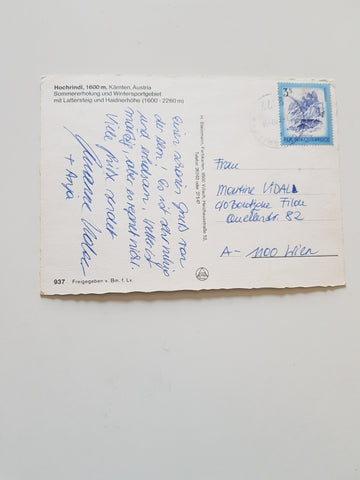 Hochrindl, 1600 m, Kärnten, Austria
Sommererholung und Wintersportgebiet
mit Lattersteig und Haidnerhöhe (1600 - 2260 m)
Einen schönen Gruß von
der Alm! Es ist sehr ruhig
und erholsam. Wetter ist
mäßig, aber es regnet nicht.
Viele Grüße sendet
+ Anja
937 Freigegeben v. Bm. f. Lv.
3 S
REPUBLIK ÖSTERREICH
Frau
Martine VIDALI
Quellenstr. 82
A - 1100 Wien